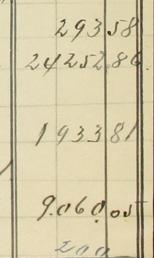 293 58
24252.86
1933 81
9.060.05
200